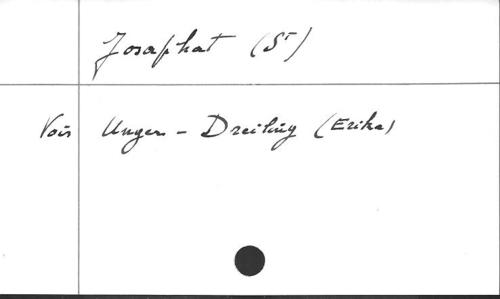 Josaphat (St)
Voir Unger-Dreiling (Erika)